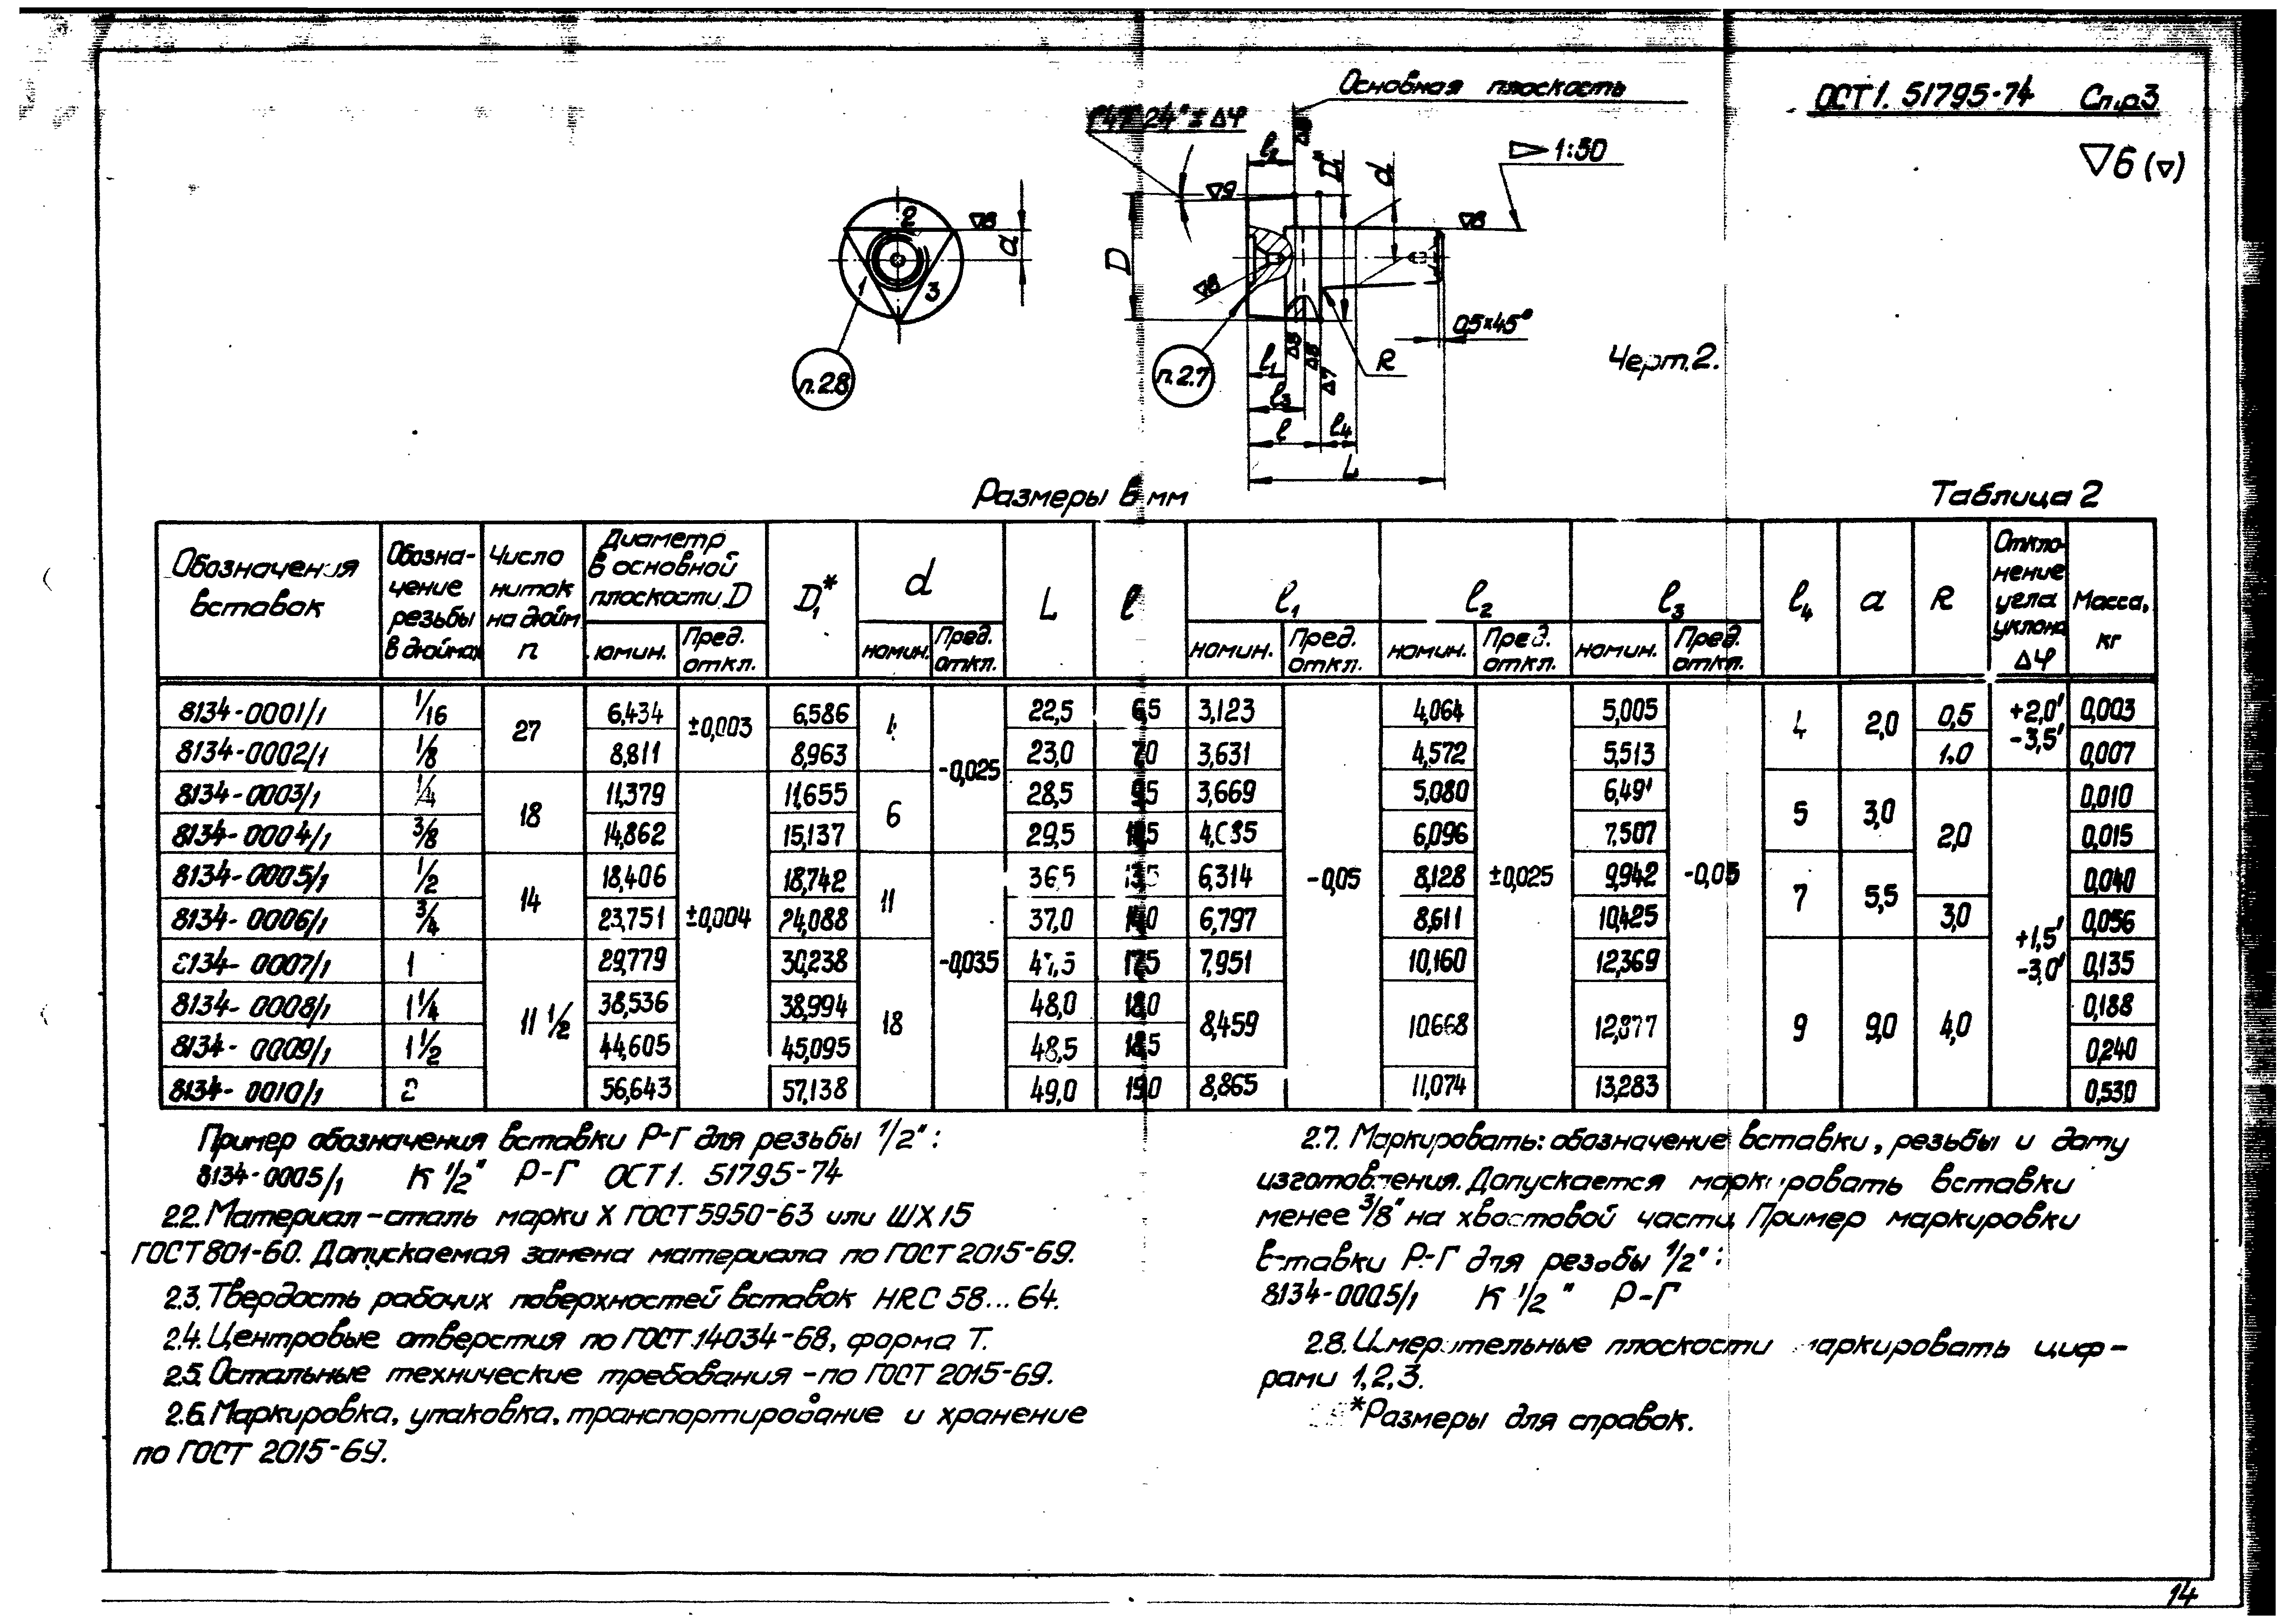 ОСТ 1. 51795-74 Стр 3
Основная плоскость
1°47'24" ± Δφ
▷ 1:50
▽6 (▽)
l₂ Δ8 D₁* d
▽9 ▽8
2 ▽8 a
1 3
D
▽8
0,5×45°
п.2.8
п.2.7
l₁ Δ8 Δ8 Δ7 R
l₃
l l₄
L
Черт. 2.
Размеры в мм Таблица 2
Обозначения вставок | Обозначение резьбы в дюймах | Число ниток на дюйм n | Диаметр в основной плоскости D | D₁* | d | L | l | l₁ | l₂ | l₃ | l₄ | a | R | Отклонение угла уклона Δφ | Масса, кг
номин. | Пред. откл. | номин. | Пред. откл. | номин. | Пред. откл. | номин. | Пред. откл. | номин. | Пред. откл.
8134-0001/1 | 1/16 | 27 | 6,434 | ±0,003 | 6,586 | 4 | -0,025 | 22,5 | 6,5 | 3,123 | -0,05 | 4,064 | ±0,025 | 5,005 | -0,05 | 4 | 2,0 | 0,5 | +2,0' -3,5' | 0,003
8134-0002/1 | 1/8 | 8,811 | 8,963 | 23,0 | 7,0 | 3,631 | 4,572 | 5,513 | 1,0 | 0,007
8134-0003/1 | 1/4 | 18 | 11,379 | ±0,004 | 11,655 | 6 | 28,5 | 9,5 | 3,669 | 5,080 | 6,491 | 5 | 3,0 | 2,0 | +1,5' -3,0' | 0,010
8134-0004/1 | 3/8 | 14,862 | 15,137 | 29,5 | 4,685 | 6,096 | 7,507 | 0,015
8134-0005/1 | 1/2 | 14 | 18,406 | 18,742 | 11 | -0,035 | 36,5 | 13,5 | 6,314 | 8,128 | 9,942 | 7 | 5,5 | 0,040
8134-0006/1 | 3/4 | 23,751 | 24,088 | 37,0 | 14,0 | 6,797 | 8,611 | 10,425 | 3,0 | 0,056
8134-0007/1 | 1 | 11 1/2 | 29,779 | 30,238 | 18 | 47,5 | 17,5 | 7,951 | 10,160 | 12,369 | 9 | 9,0 | 4,0 | 0,135
8134-0008/1 | 1 1/4 | 38,536 | 38,994 | 48,0 | 18,0 | 8,459 | 10,668 | 12,877 | 0,188
8134-0009/1 | 1 1/2 | 44,605 | 45,095 | 48,5 | 18,5 | 0,240
8134-0010/1 | 2 | 56,643 | 57,138 | 49,0 | 19,0 | 8,865 | 11,074 | 13,283 | 0,530
Пример обозначения вставки Р-Г для резьбы 1/2":
8134-0005/1 К 1/2" Р-Г ОСТ 1. 51795-74
2.2. Материал - сталь марки Х ГОСТ 5950-63 или ШХ15
ГОСТ 801-60. Допускаемая замена материала по ГОСТ 2015-69.
2.3. Твердость рабочих поверхностей вставок HRC 58...64.
2.4. Центровые отверстия по ГОСТ 14034-68, форма Т.
2.5. Остальные технические требования - по ГОСТ 2015-69.
2.6. Маркировка, упаковка, транспортирование и хранение
по ГОСТ 2015-69.
2.7. Маркировать: обозначение вставки, резьбы и дату
изготовления. Допускается маркировать вставки
менее 3/8" на хвостовой части. Пример маркировки
вставки Р-Г для резьбы 1/2":
8134-0005/1 К 1/2" Р-Г
2.8. Измерительные плоскости маркировать циф-
рами 1, 2, 3.
*Размеры для справок.
14